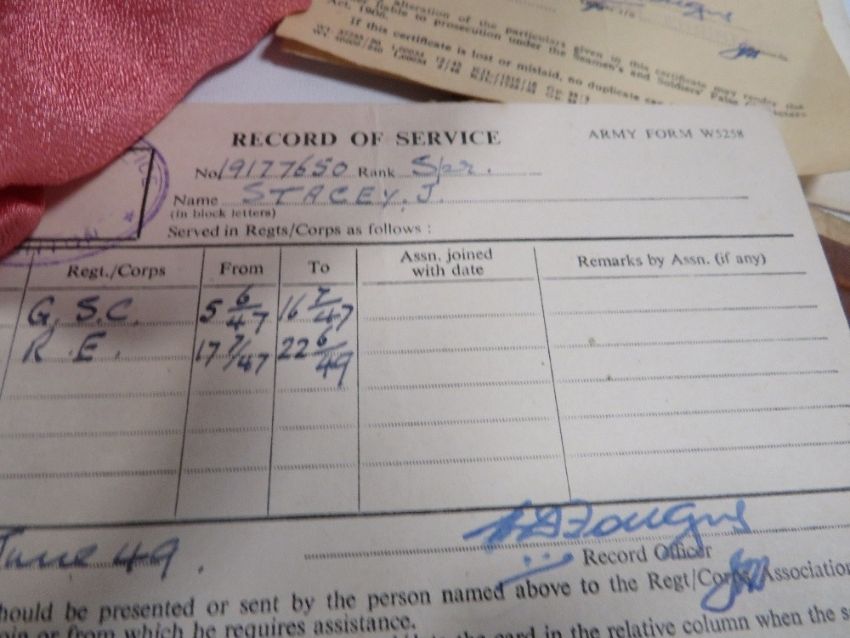 alteration of the particulars given in this certificate may render the
liable to prosecution under the Seamen's and Soldiers' False Characters
Act, 1906.
If this certificate is lost or mislaid, no duplicate can
RECORD OF SERVICE
ARMY FORM W5258
No. 19177650 Rank Spr.
Name STACEY. J.
(in block letters)
Served in Regts/Corps as follows :
Regt./Corps From To Assn. joined with date Remarks by Assn. (if any)
G. S. C. 5 6/47 16 7/47
R. E. 17 7/47 22 6/49
June 49.
Record Officer
should be presented or sent by the person named above to the Regt/Corps Association
or from which he requires assistance.
card in the relative column when the